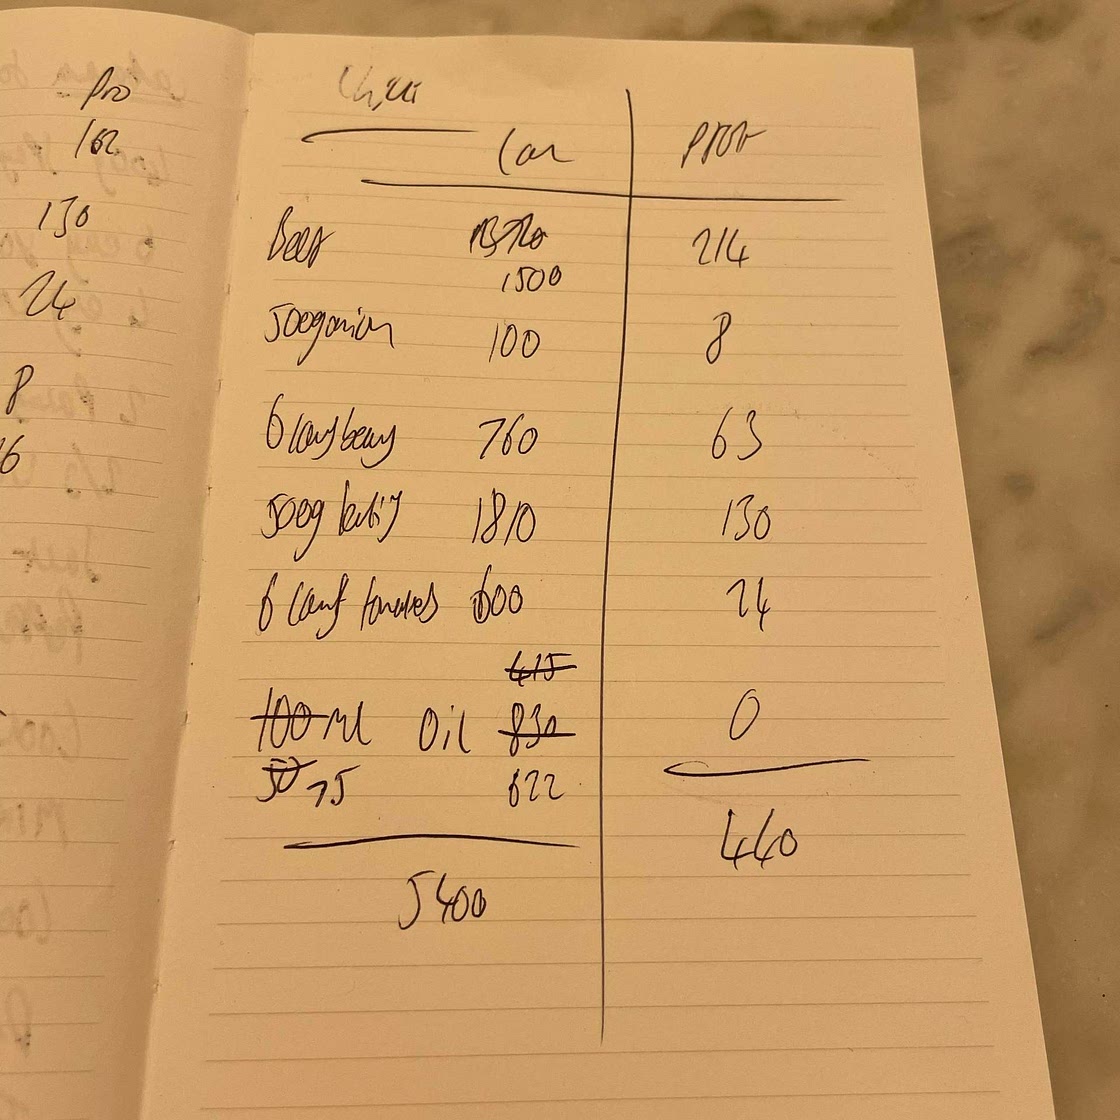 Pro
102
130
24
8
6
Chilli
Cal Prot
Beef 1500 214
500g onion 100 8
6 cans beans 760 63
500g lentils 1810 130
6 cans tomatoes 600 24
415
100 ml Oil 830 0
50 75 622
5400 440